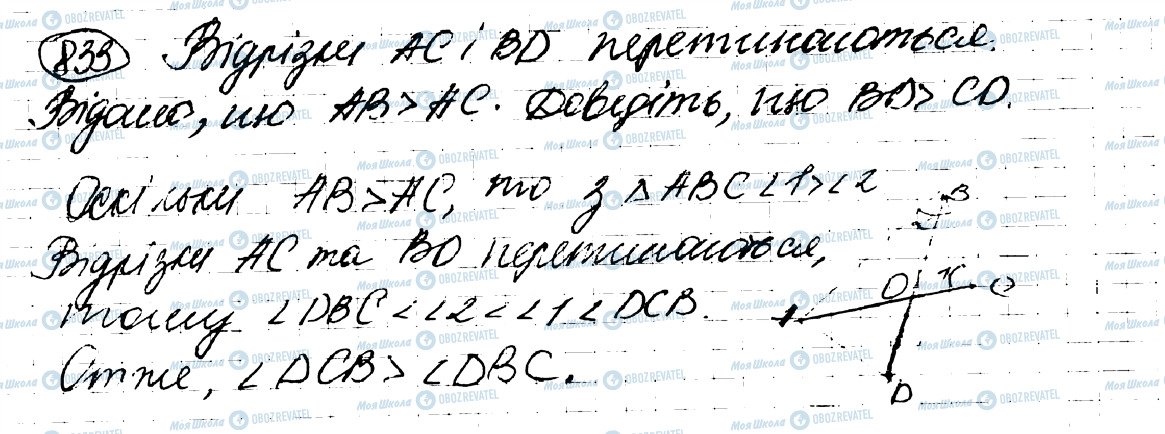 833 Відрізки AC і BD перетинаються.
Відомо, що AB > AC. Доведіть, що BD > CD.
Оскільки AB > AC, то з △ABC ∠1 > ∠2
Відрізки AC та BD перетинаються,
тому ∠DBC < ∠2 < ∠1 < ∠DCB.
Отже, ∠DCB > ∠DBC.
B
O K C
A
D